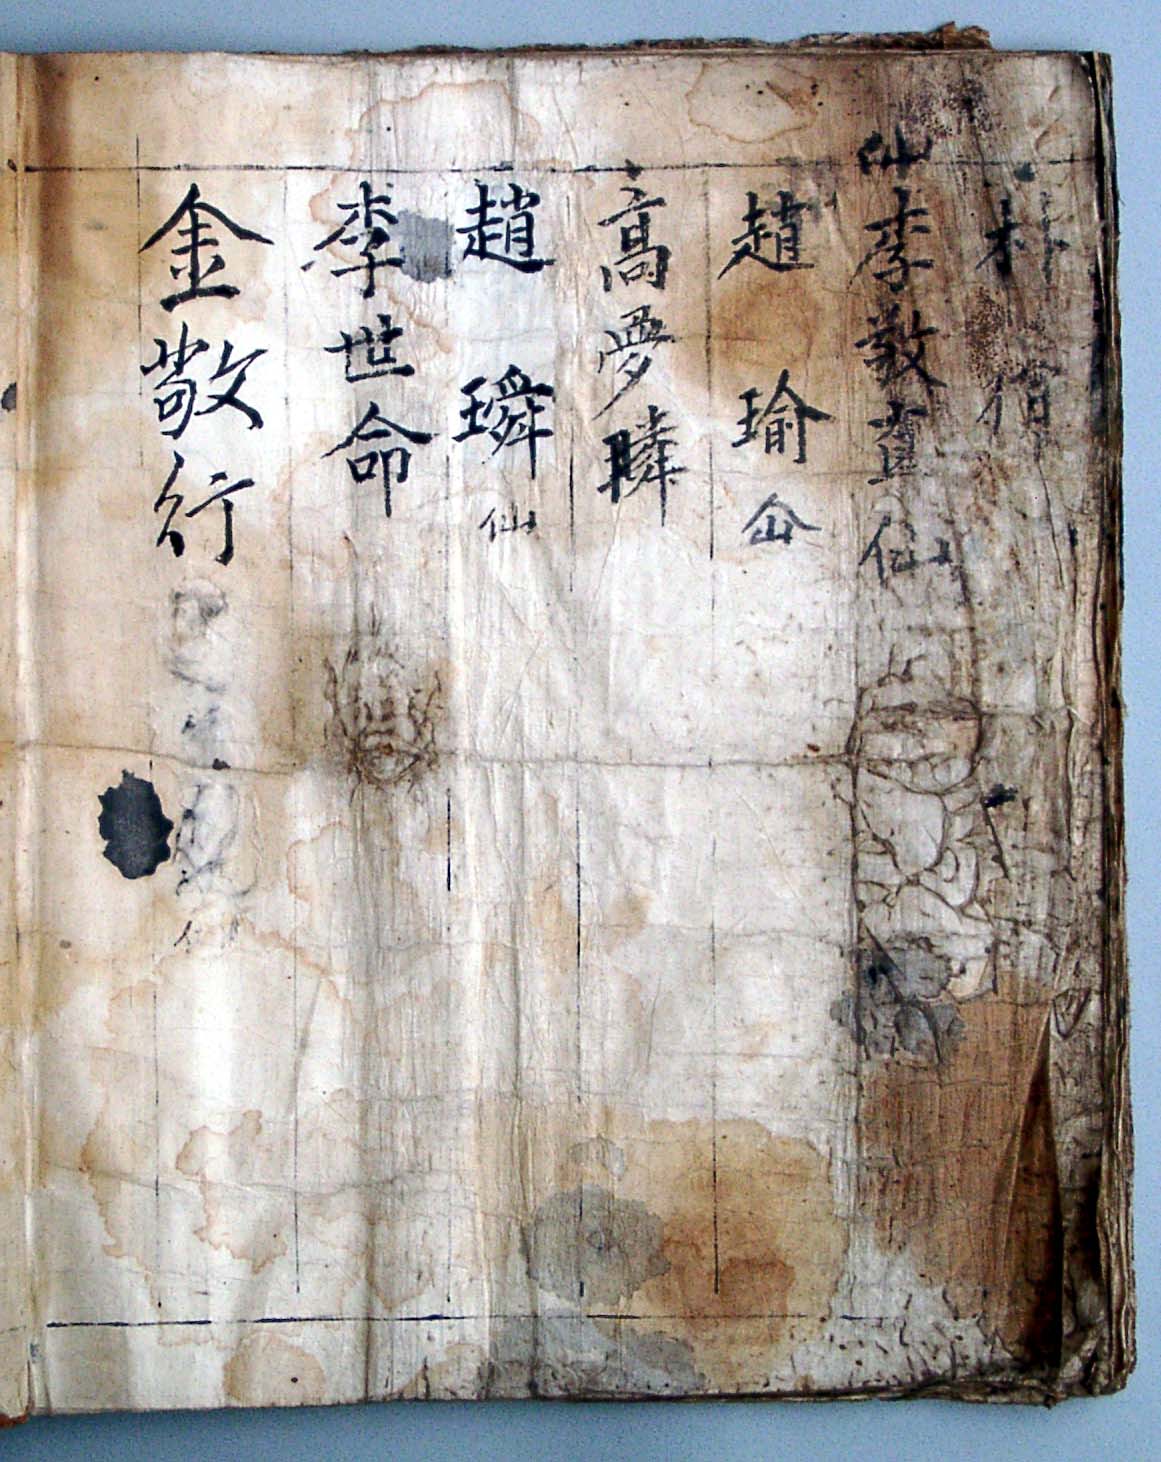 朴
仙李敬直仙
趙瑜仚
高夢疄
趙璾仙
李世命
金敬行